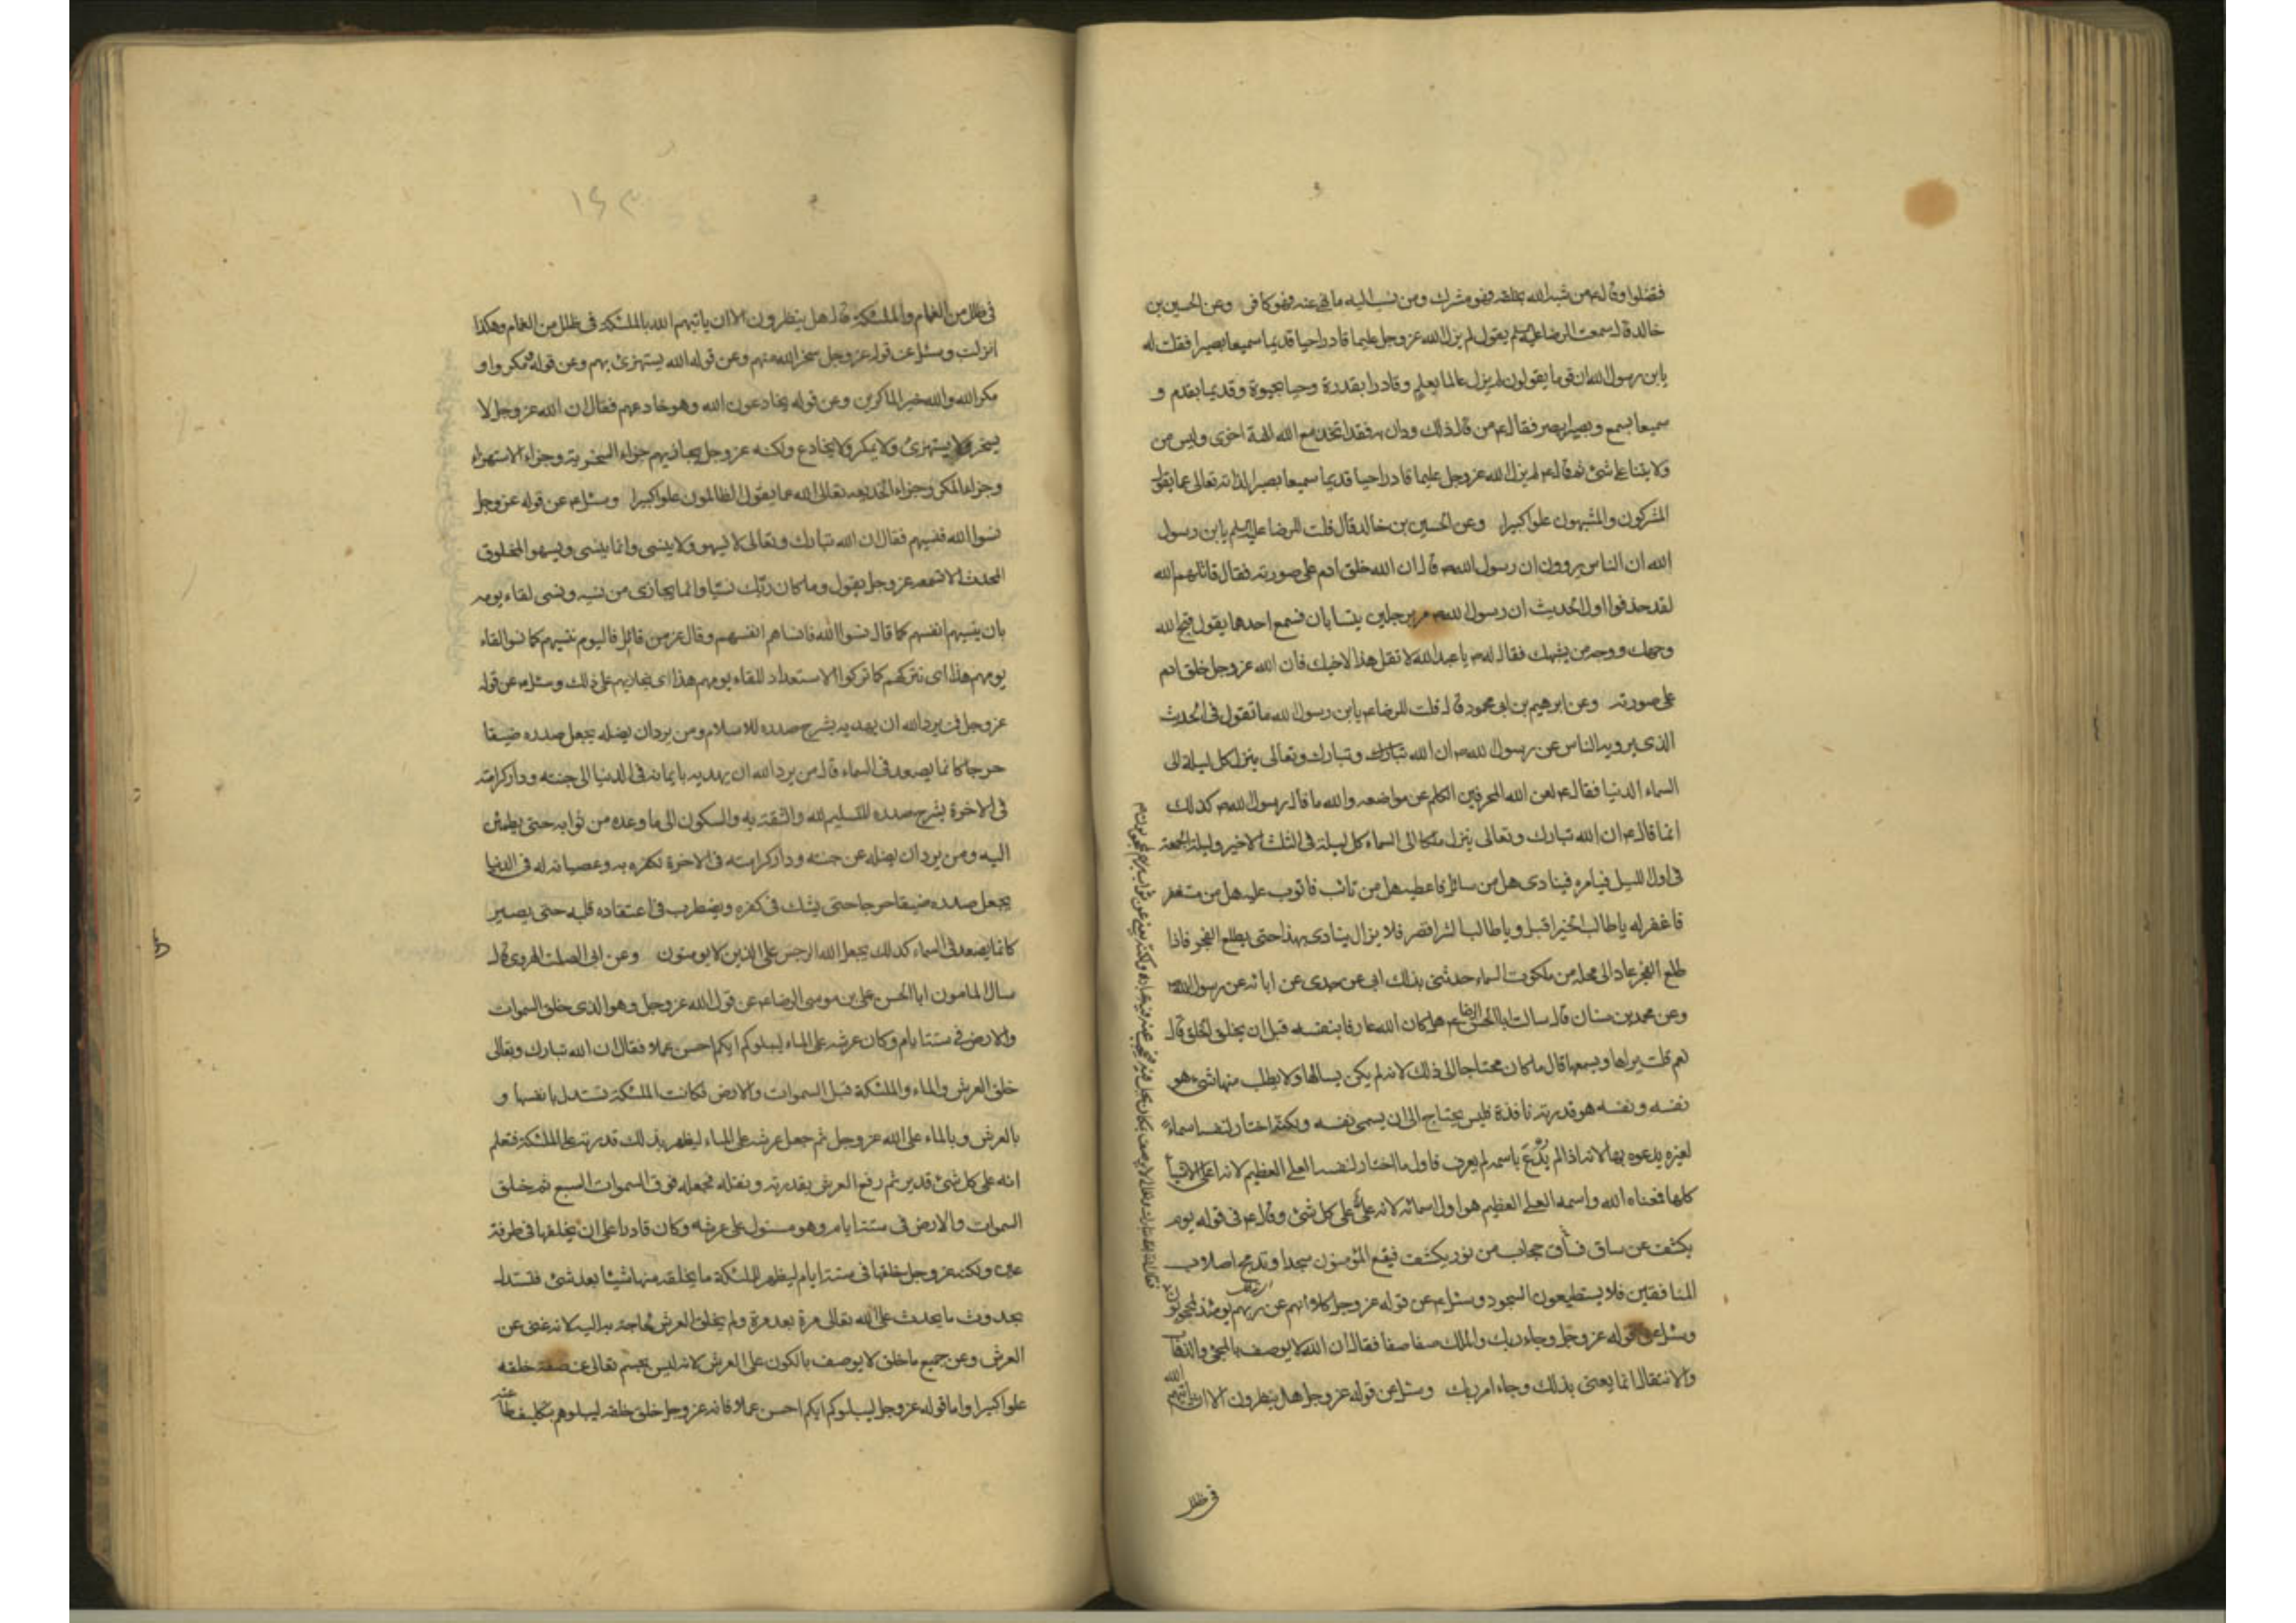 فضلوا وقال ع من شبه الله بخلقه فهو مشرك ومن نسب اليه ما نهى عنه فهو كافر وعن الحسين بن
خالد قال سمعت الرضا عليه السلم يقول لم يزل الله عز وجل عليما قادرا حيا قديما سميعا بصيرا فقلت له
يابن رسول الله ان قوما يقولون لم يزل عالما بعلم وقادرا بقدرة وحيا بحيوة وقديما بقدم و
سميعا بسمع وبصيرا ببصر فقال ع من قال ذلك ودان به فقد اتخذ مع الله الهة اخرى وليس من
ولايتنا على شئ ثم قال ع لم يزل الله عز وجل عليما قادرا حيا قديما سميعا بصيرا لذاته تعالى عما يقول
المشركون والمشبهون علوا كبيرا وعن الحسين بن خالد قال قلت للرضا عليه السلم يابن رسول
الله ان الناس يروون ان رسول الله ص قال ان الله خلق ادم على صورته فقال قاتلهم الله
لقد حذفوا اول الحديث ان رسول الله ص مر برجلين يتسابان فسمع احدهما يقول قبح الله
وجهك ووجه من يشبهك فقال له ص يا عبد الله لا تقل هذا لاخيك فان الله عز وجل خلق ادم
على صورته وعن ابرهيم بن ابى محمود قال قلت للرضا ع يابن رسول الله ما تقول فى الحديث
الذى يرويه الناس عن رسول الله ص ان الله تبارك وتبارك وتعالى ينزل كل ليلة الى
السماء الدنيا فقال ع لعن الله المحرفين الكلم عن مواضعه والله ما قال رسول الله ص كذلك
انما قال ع ان الله تبارك وتعالى ينزل ملكا الى السماء كل ليلة فى الثلث الاخير وليلة الجمعة
فى اول الليل فيامره فينادى هل من سائل فاعطيه هل من تائب فاتوب عليه هل من مستغفر
فاغفر له يا طالب الخير اقبل ويا طالب الشر اقصر فلا يزال ينادى بهذا حتى يطلع الفجر فاذا
طلع الفجر عاد الى محله من ملكوت السماء حدثنى بذلك ابى عن جدى عن ابائه عن رسول الله ص
وعن محمد بن سنان قال سالت ابا الحسن الرضا ع هل كان الله عارفا بنفسه قبل ان يخلق الخلق قال
نعم قلت يراها ويسمعها قال ما كان محتاجا الى ذلك لانه لم يكن يسالها ولا يطلب منها شئ هو
نفسه ونفسه هو قدرته نافذة فليس يحتاج الى ان يسمى نفسه ولكنه اختار لنفسه اسماء
لغيره يدعوه بها لانه اذا لم يدع باسمه لم يعرف فاول ما اختار لنفسه العلى العظيم لانه اعلى الاشياء
كلها فمعناه الله واسمه العلى العظيم هو اول اسمائه لانه على على كل شئ وقال ع فى قوله يوم
يكشف عن ساق فساق حجاب من نور يكشف فيقع المؤمنون سجدا وتدمج اصلاب
المنافقين فلا يستطيعون السجود وسئل ع عن قوله عز وجل كلا انهم عن ربهم يومئذ لمحجوبون
وسئل عن قوله عز وجل وجاء ربك والملك صفا صفا فقال ان الله لا يوصف بالمجئ والذهاب
والانتقال انما يعنى بذلك وجاء امر ربك وسئل عن قوله عز وجل هل ينظرون الا ان ياتيهم الله
فى ظلل
١٤٣
فى ظلل من الغمام والملئكة قال هل ينظرون الا ان ياتيهم الله بالملئكة فى ظلل من الغمام وهكذا
انزلت وسئل عن قوله عز وجل سخر الله منهم وعن قوله الله يستهزئ بهم وعن قوله ومكروا و
مكر الله والله خير الماكرين وعن قوله يخادعون الله وهو خادعهم فقال ان الله عز وجل لا
يسخر ولا يستهزئ ولا يمكر ولا يخادع ولكنه عز وجل يجازيهم جزاء السخرية وجزاء الاستهزاء
وجزاء المكر وجزاء الخديعه تعالى الله عما يقول الظالمون علوا كبيرا وسئل ع عن قوله عز وجل
نسوا الله فنسيهم فقال ان الله تبارك وتعالى لا يسهو ولا ينسى وانما ينسى ويسهو المخلوق
المحدث الا تسمعه عز وجل يقول وما كان ربك نسيا وانما يجازى من نسيه ونسى لقاء يومه
بان ينسيهم انفسهم كما قال نسوا الله فانساهم انفسهم وقال عز من قائل فاليوم ننسيهم كما نسوا لقاء
يومهم هذا اى نتركهم كما تركوا الاستعداد للقاء يومهم هذا اى نجازيهم على ذلك وسئل ع عن قوله
عز وجل فمن يرد الله ان يهديه يشرح صدره للاسلام ومن يرد ان يضله يجعل صدره ضيقا
حرجا كانما يصعد فى السماء قال من يرد الله ان يهديه بايمانه فى الدنيا الى جنته ودار كرامته
فى الاخرة يشرح صدره للتسليم لله والثقة به والسكون الى ما وعده من ثوابه حتى يطمئن
اليه ومن يرد ان يضله عن جنته ودار كرامته فى الاخرة لكفره به وعصيانه له فى الدنيا
يجعل صدره ضيقا حرجا حتى يشك فى كفره ويضطرب فى اعتقاده قلبه حتى يصير
كانما يصعد فى السماء كذلك يجعل الله الرجس على الذين لا يومنون وعن ابى الصلت الهروى قال
سال المامون ابا الحسن على بن موسى الرضا ع عن قول الله عز وجل وهو الذى خلق السموات
والارض فى ستة ايام وكان عرشه على الماء ليبلوكم ايكم احسن عملا فقال ان الله تبارك وتعالى
خلق العرش والماء والملئكة قبل السموات والارض فكانت الملئكة تستدل بانفسها و
بالعرش وبالماء على الله عز وجل ثم جعل عرشه على الماء ليظهر بذلك قدرته على الملئكة فتعلم
انه على كل شئ قدير ثم رفع العرش بقدرته ونقله فجعله فوق السموات السبع ثم خلق
السموات والارض فى ستة ايام وهو مستول على عرشه وكان قادرا على ان يخلقها فى طرفة
عين ولكنه عز وجل خلقها فى ستة ايام ليظهر للملئكة ما يخلقه منها شيئا بعد شئ فتستدل
بحدوث ما يحدث على الله تعالى مرة بعد مرة ولم يخلق العرش لحاجة به اليه لانه غنى عن
العرش وعن جميع ما خلق لا يوصف بالكون على العرش لانه ليس بجسم تعالى عن صفة خلقه
علوا كبيرا واما قوله عز وجل ليبلوكم ايكم احسن عملا فانه عز وجل خلق خلقه ليبلوهم بتكليف طاعته